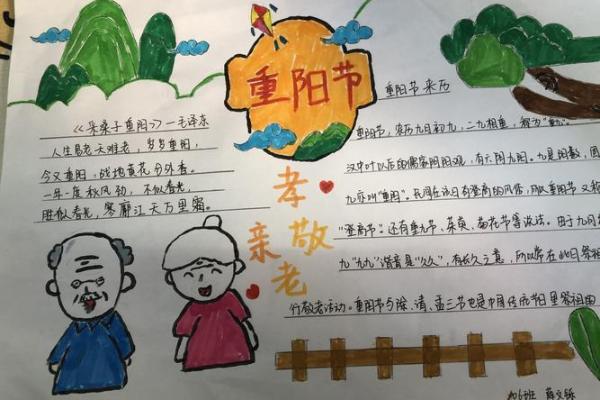 重阳节
《采桑子·重阳》——毛泽东
人生易老天难老，岁岁重阳，
今又重阳，战地黄花分外香。
一年一度秋风劲，不似春光，
胜似春光，寥廓江天万里霜。
孝敬
亲老
重阳节来历
重阳节，农历九月初九，二九相重，称为"重九"。
汉中叶以后的儒家阴阳观，有六阴九阳。九是阳数，固
九亦叫"重阳"。民间在该日有登高的风俗，所以重阳节又称
"登高节"。还有重九节、茱萸、菊花节等说法。由于九月初
九"九九"谐音是"久久"，有长久之意，所以常在此日祭祖
行敬老活动。重阳节与除、清、盂三节也是中国传统节日里祭祖的
6班